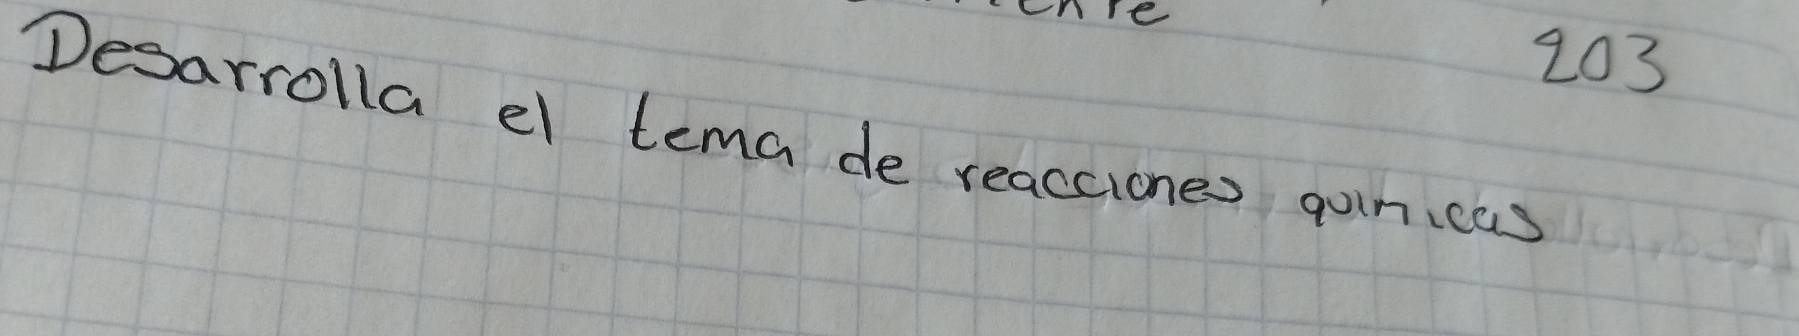 203
Desarrolla el tema de reacciones quimicas